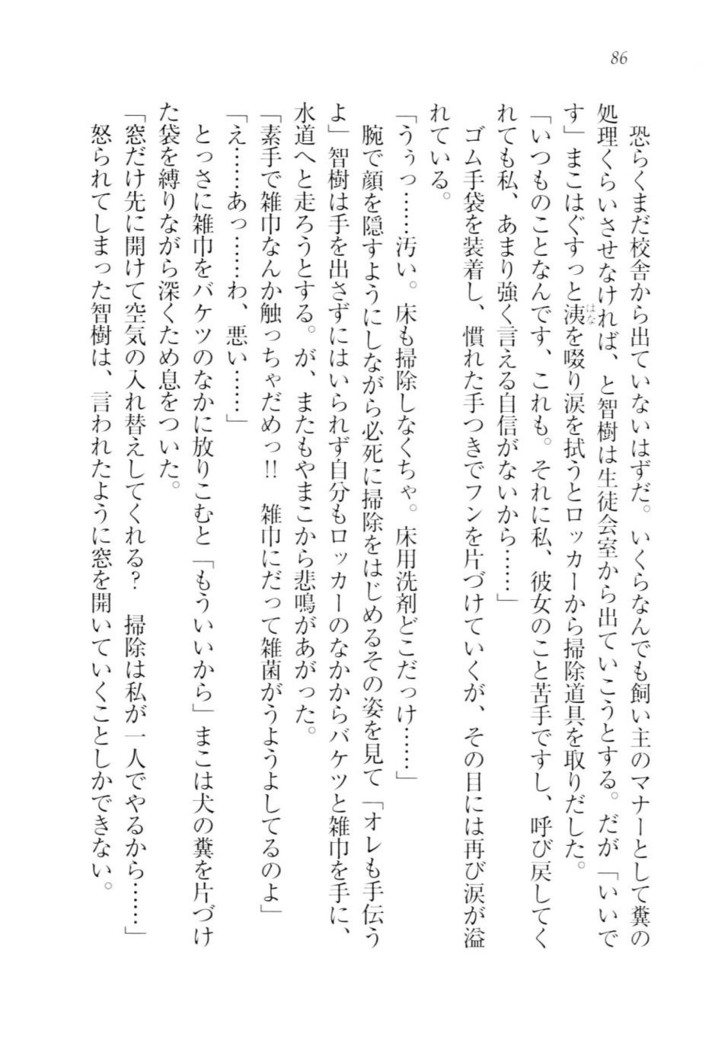 86
恐らくまだ校舎から出ていないはずだ。いくらなんでも飼い主のマナーとして糞の
処理くらいさせなければ、と智樹は生徒会室から出ていこうとする。だが「いいで
す」まこはぐすっと洟を啜り涙を拭うとロッカーから掃除道具を取りだした。
はな
「いつものことなんです、これも。それに私、彼女のこと苦手ですし、呼び戻してく
れても私、あまり強く言える自信がないから……」
ゴム手袋を装着し、慣れた手つきでフンを片づけていくが、その目には再び涙が溢
れている。
「うぅっ……汚い。床も掃除しなくちゃ。床用洗剤どこだっけ……」
腕で顔を隠すようにしながら必死に掃除をはじめるその姿を見て「オレも手伝う
よ」智樹は手を出さずにはいられず自分もロッカーのなかからバケツと雑巾を手に、
水道へと走ろうとする。が、またもやまこから悲鳴があがった。
「素手で雑巾なんか触っちゃだめっ!!　雑巾にだって雑菌がうようよしてるのよ」
「え……あっ……わ、悪い……」
とっさに雑巾をバケツのなかに放りこむと「もういいから」まこは犬の糞を片づけ
た袋を縛りながら深くため息をついた。
「窓だけ先に開けて空気の入れ替えしてくれる?　掃除は私が一人でやるから……」
怒られてしまった智樹は、言われたように窓を開いていくことしかできない。